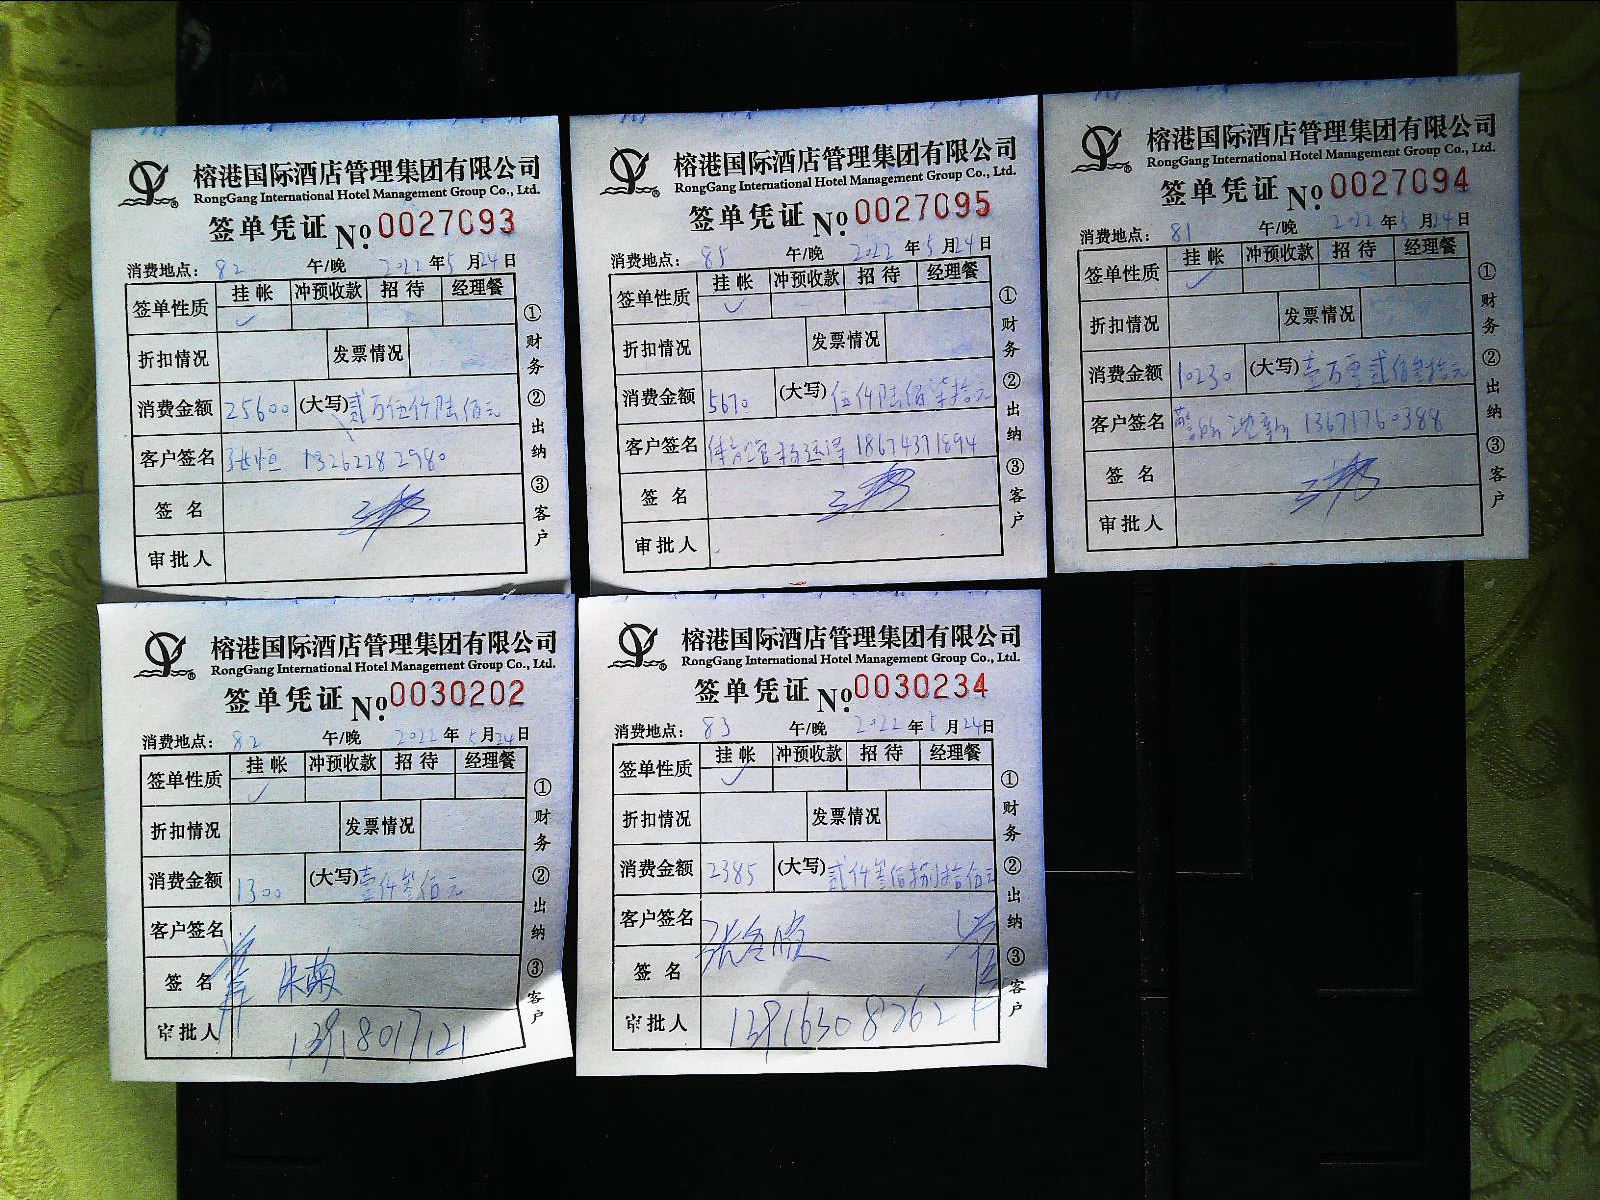 榕港国际酒店管理集团有限公司
RongGang International Hotel Management Group Co., Ltd.
签单凭证 No. 0027093
消费地点: 82 午/晚 2022 年 5 月 24 日
签单性质 挂帐 冲预收款 招待 经理餐
✓
折扣情况 发票情况
消费金额 25600 (大写) 贰万伍仟陆佰元
客户签名 张恒 13262282980
签名
审批人
①财务 ②出纳 ③客户
榕港国际酒店管理集团有限公司
RongGang International Hotel Management Group Co., Ltd.
签单凭证 No. 0027095
消费地点: 85 午/晚 2022 年 5 月 24 日
签单性质 挂帐 冲预收款 招待 经理餐
✓
折扣情况 发票情况
消费金额 5670 (大写) 伍仟陆佰柒拾元
客户签名 18674371894
签名
审批人
①财务 ②出纳 ③客户
榕港国际酒店管理集团有限公司
RongGang International Hotel Management Group Co., Ltd.
签单凭证 No. 0027094
消费地点: 81 午/晚 2022 年 5 月 24 日
签单性质 挂帐 冲预收款 招待 经理餐
✓
折扣情况 发票情况
消费金额 10230 (大写) 壹万零贰佰叁拾元
客户签名 13671760388
签名
审批人
①财务 ②出纳 ③客户
榕港国际酒店管理集团有限公司
RongGang International Hotel Management Group Co., Ltd.
签单凭证 No. 0030202
消费地点: 82 午/晚 2022 年 5 月 24 日
签单性质 挂帐 冲预收款 招待 经理餐
✓
折扣情况 发票情况
消费金额 1300 (大写) 壹仟叁佰元
客户签名
签名 朱菊
审批人 13918017121
①财务 ②出纳 ③客户
榕港国际酒店管理集团有限公司
RongGang International Hotel Management Group Co., Ltd.
签单凭证 No. 0030234
消费地点: 83 午/晚 2022 年 5 月 24 日
签单性质 挂帐 冲预收款 招待 经理餐
✓
折扣情况 发票情况
消费金额 2385 (大写) 贰仟叁佰捌拾伍元
客户签名
签名
审批人 13916308262
①财务 ②出纳 ③客户